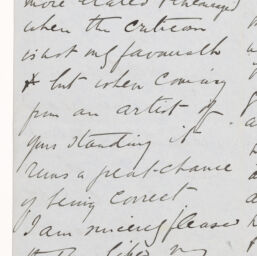 more elated & encouraged
when the criticism
is not only favourable
& but when coming
from an artist of
your standing it
runs a great chance
of being correct
I am sincerely pleased
liked my